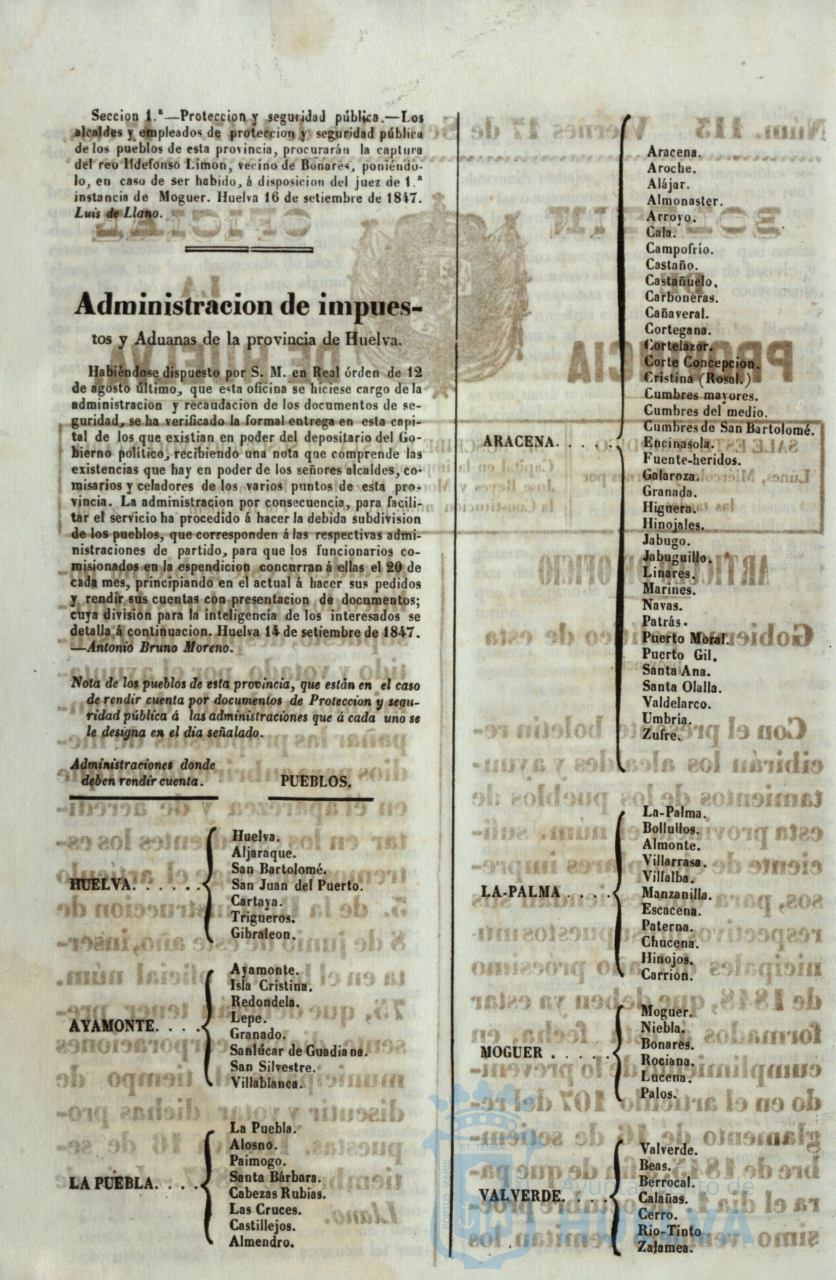 Seccion 1.ª—Proteccion y seguridad pública.—Los
alcaldes y empleados de proteccion y seguridad pública
de los pueblos de esta provincia, procurarán la captura
del reo Ildefonso Limon, vecino de Bonares, poniéndo-
lo, en caso de ser habido, á disposicion del juez de 1.ª
instancia de Moguer. Huelva 16 de setiembre de 1847.
Luis de Llano.
Administracion de impues-
tos y Aduanas de la provincia de Huelva.
Habiéndose dispuesto por S. M. en Real órden de 12
de agosto último, que esta oficina se hiciese cargo de la
administracion y recaudacion de los documentos de se-
guridad, se ha verificado la formal entrega en esta capi-
tal de los que existian en poder del depositario del Go-
bierno político, recibiendo una nota que comprende las
existencias que hay en poder de los señores alcaldes, co-
misarios y celadores de los varios puntos de esta pro-
vincia. La administracion por consecuencia, para facili-
tar el servicio ha procedido á hacer la debida subdivision
de los pueblos, que corresponden á las respectivas admi-
nistraciones de partido, para que los funcionarios co-
misionados en la espendicion concurran á ellas el 20 de
cada mes, principiando en el actual á hacer sus pedidos
y rendir sus cuentas con presentacion de documentos;
cuya division para la inteligencia de los interesados se
detalla á continuacion. Huelva 14 de setiembre de 1847.
—Antonio Bruno Moreno.
Nota de los pueblos de esta provincia, que están en el caso
de rendir cuenta por documentos de Proteccion y segu-
ridad pública á las administraciones que á cada uno se
le designa en el dia señalado.
Administraciones donde
deben rendir cuenta. PUEBLOS.
Huelva.
Aljaraque.
San Bartolomé.
HUELVA. . . . . . San Juan del Puerto.
Cartaya.
Trigueros.
Gibraleon.
Ayamonte.
Isla Cristina.
Redondela.
AYAMONTE. . . . Lepe.
Granado.
Sanlúcar de Guadiana.
San Silvestre.
Villablanca.
La Puebla.
Alosno.
Paimogo.
LA PUEBLA. . . . Santa Bárbara.
Cabezas Rubias.
Las Cruces.
Castillejos.
Almendro.
Aracena.
Aroche.
Alájar.
Almonaster.
Arroyo.
Cala.
Campofrío.
Castaño.
Castañuelo.
Carboneras.
Cañaveral.
Cortegana.
Cortelazor.
Corte Concepcion.
Cristina (Rosal.)
Cumbres mayores.
Cumbres del medio.
Cumbres de San Bartolomé.
ARACENA. . . . . Encinasola.
Fuente-heridos.
Galaroza.
Granada.
Higuera.
Hinojales.
Jabugo.
Jabuguillo.
Linares.
Marines.
Navas.
Patrás.
Puerto Moral.
Puerto Gil.
Santa Ana.
Santa Olalla.
Valdelarco.
Umbría.
Zufre.
La-Palma.
Bollullos.
Almonte.
Villarrasa.
Villalba.
LA-PALMA . . . . Manzanilla.
Escacena.
Paterna.
Chucena.
Hinojos.
Carrion.
Moguer.
Niebla.
MOGUER . . . . . Bonares.
Rociana.
Lucena.
Palos.
Valverde.
Beas.
Berrocal.
VALVERDE. . . . Calañas.
Cerro.
Rio-Tinto
Zalamea.
Ayuntamiento de
HUELVA